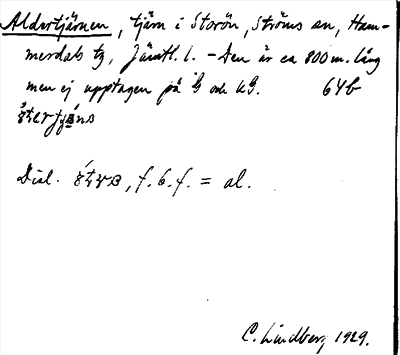 Aldertjärnen, tjärn i Storön, Ströms sn, Ham-
merdals tg, Jämtl. l. – Den är ca 800 m. lång
men ej upptagen på och kg. 64b
Dial. , f. b. f. = al.
C. Lindberg 1929.